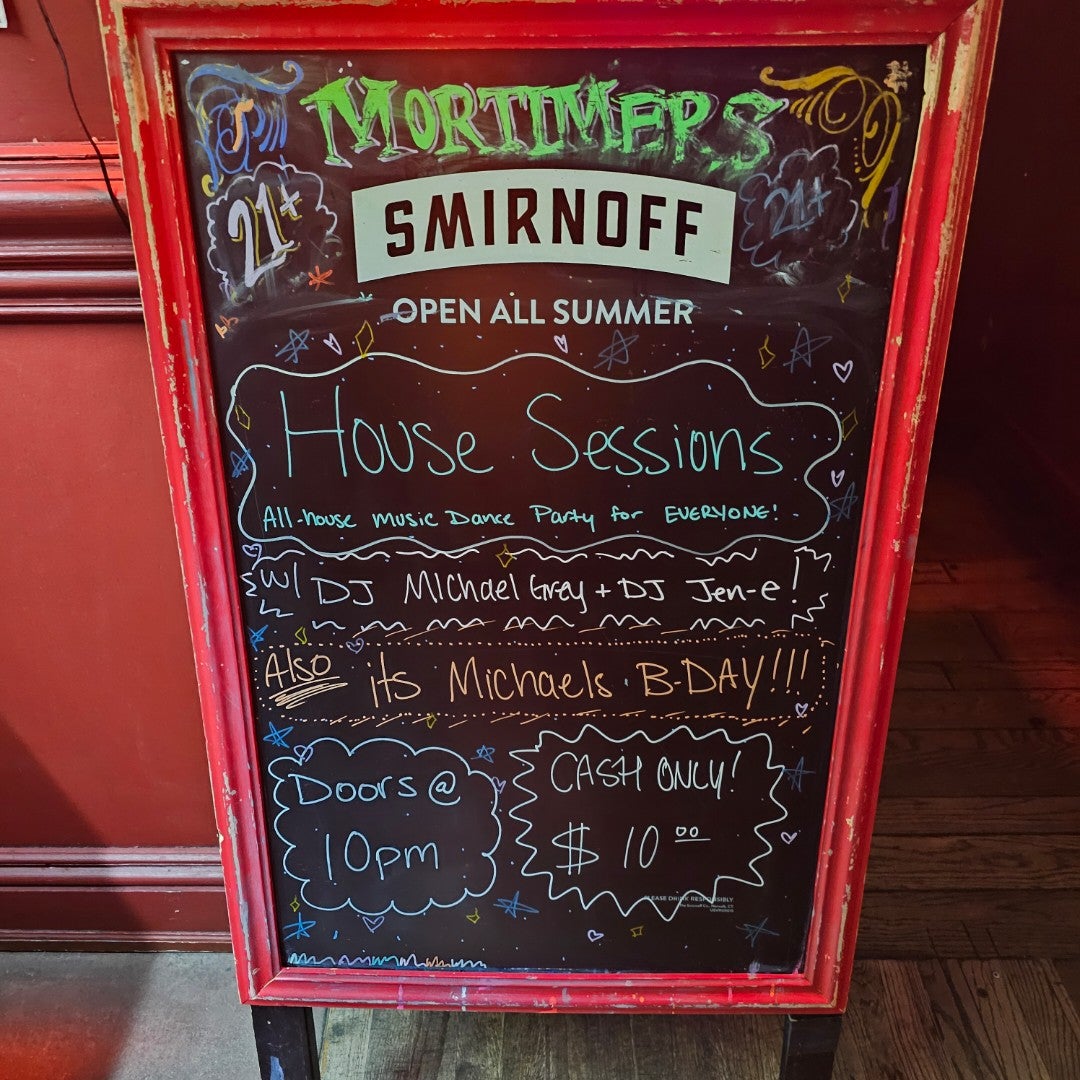 MORTIMERS
21+
SMIRNOFF
21+
OPEN ALL SUMMER
House Sessions
All-house music Dance Party for EVERYONE!
w/ DJ Michael Grey + DJ Jen-e!
Also its Michaels B-DAY!!!
Doors @
10pm
CASH ONLY!
$ 10 00
PLEASE DRINK RESPONSIBLY